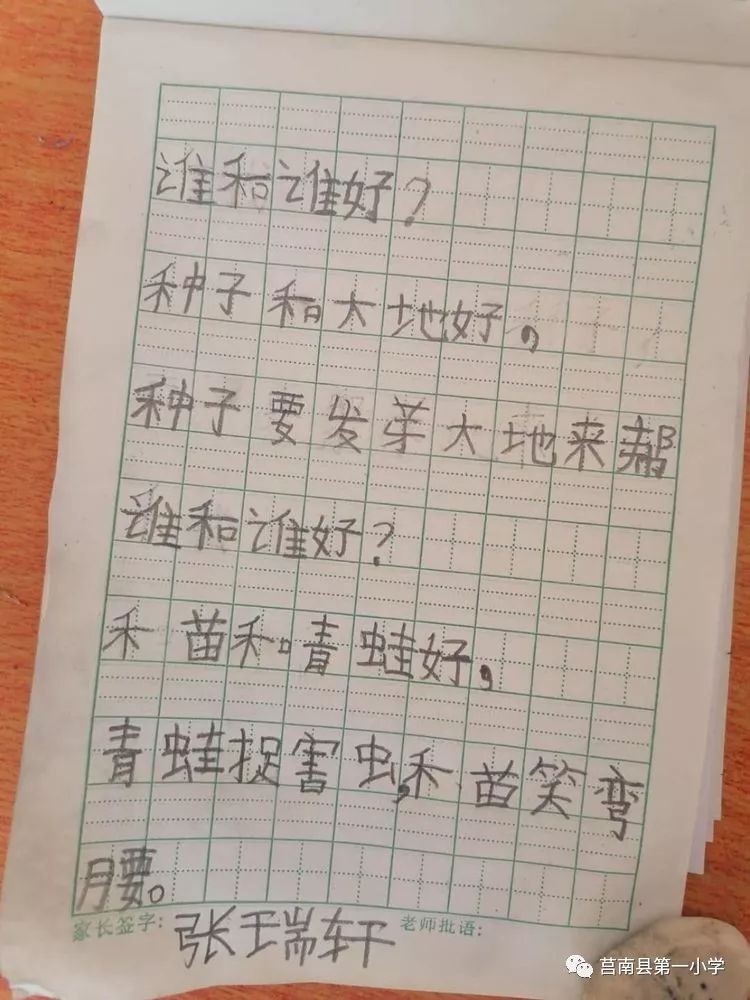 谁和谁好?
种子和大地好,
种子要发芽大地来帮
谁和谁好?
禾苗和青蛙好,
青蛙捉害虫,禾苗笑弯
腰。
家长签字: 张瑞轩 老师批语:
莒南县第一小学